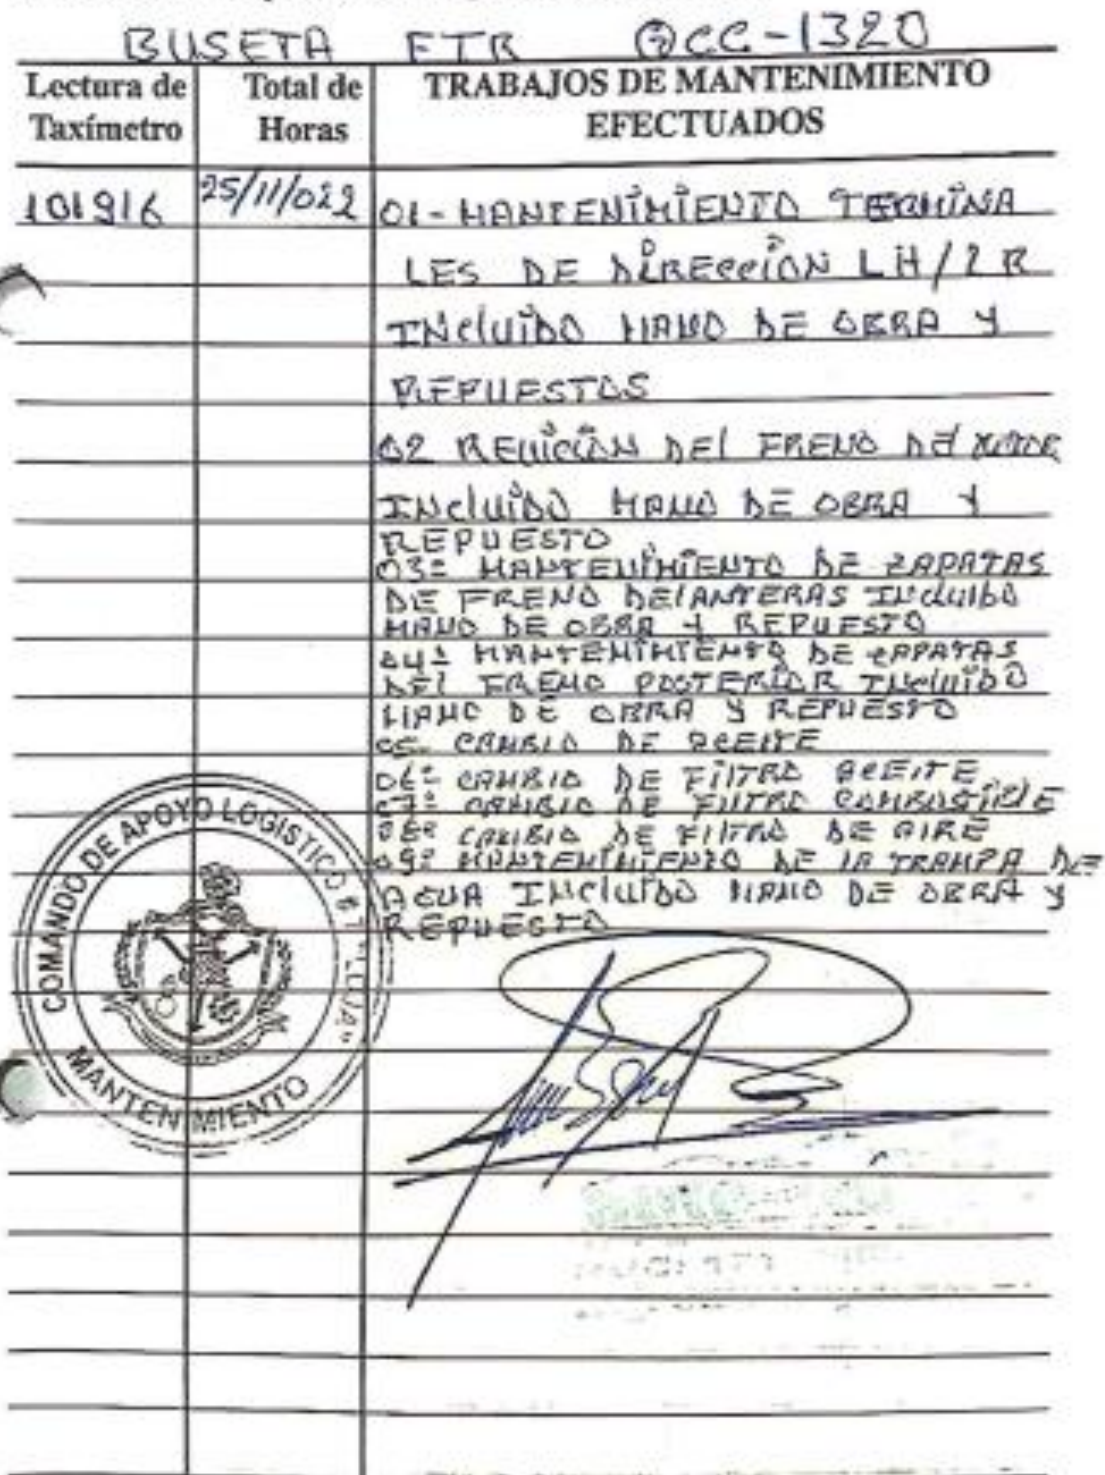 BUSETA FTR QCC-1320
Lectura de Taxímetro
Total de Horas
TRABAJOS DE MANTENIMIENTO EFECTUADOS
101916 25/11/022 01- MANTENIMIENTO TERMINA
LES DE DIRECCIÓN LH/2 R
INCLUIDO MANO DE OBRA Y
REPUESTOS
02 REVICIÓN DEL FRENO DEL MOTOR
INCLUIDO MANO DE OBRA Y
REPUESTO
03= MANTENIMIENTO DE ZAPATAS
DE FRENO DELANTERAS INCLUIDO
MANO DE OBRA Y REPUESTO
04= MANTENIMIENTO DE ZAPATAS
DEL FRENO POSTERIOR INCLUIDO
MANO DE OBRA Y REPUESTO
05- CAMBIO DE ACEITE
06= CAMBIO DE FILTRO ACEITE
07= CAMBIO DE FILTRO COMBUSTIBLE
08= CAMBIO DE FILTRO DE AIRE
09= MANTENIMIENTO DE LA TRAMPA DE
AGUA INCLUIDO MANO DE OBRA Y
REPUESTO
COMANDO DE APOYO LOGÍSTICO "LOJA"
MANTENIMIENTO